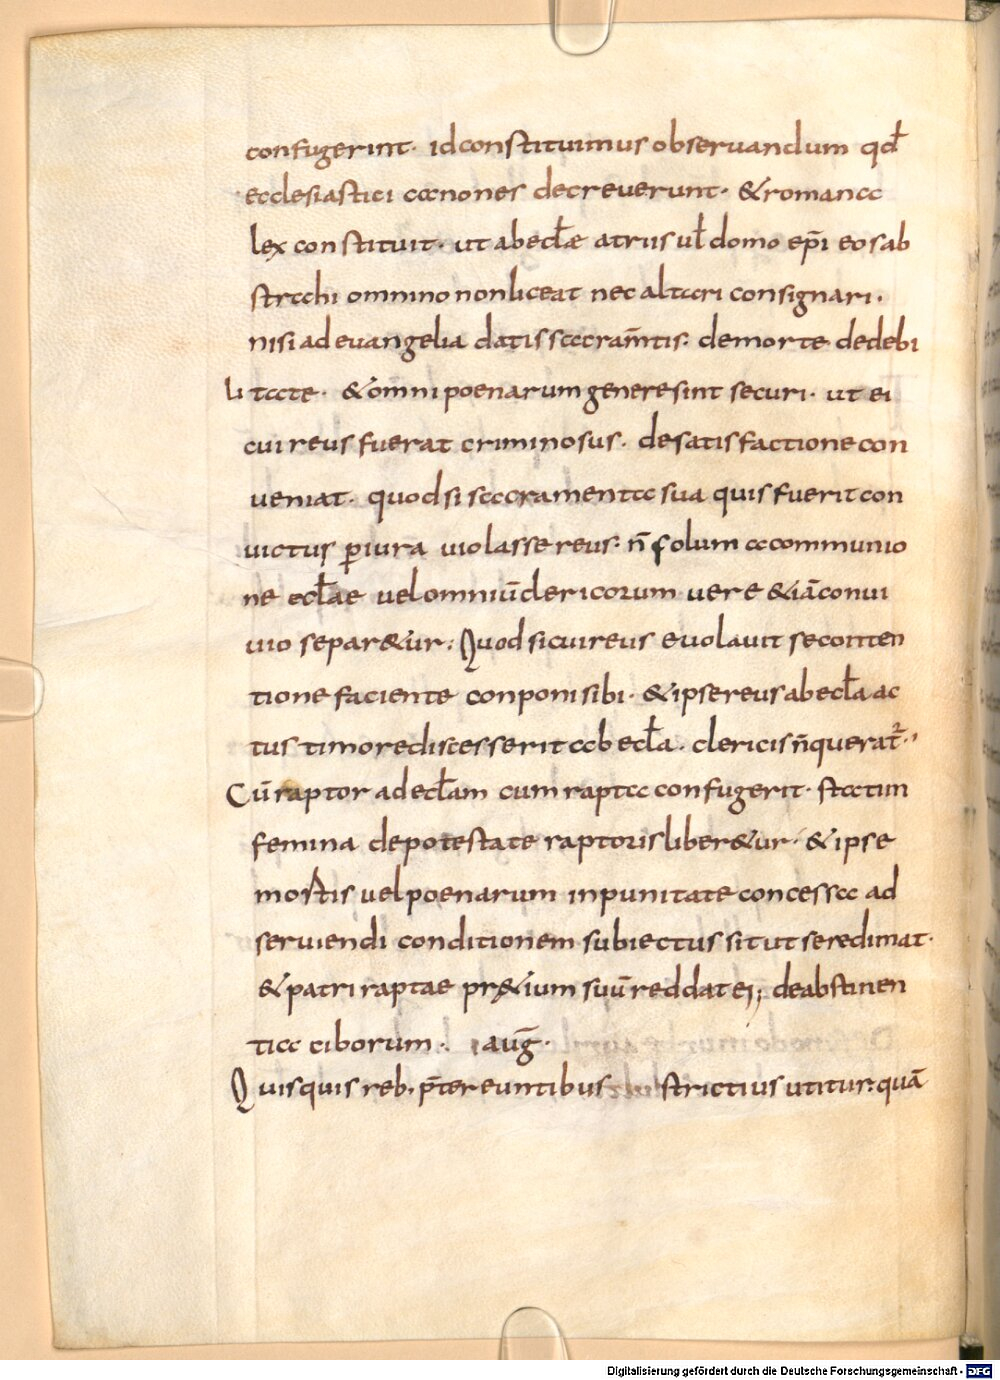 confugerint· id constituimus observandum qđ
ecclesiastici canones decreverunt· & romana
lex constituit· ut ab eccłæ atriis uł domo ep̄i eos ab
strachi omnino non liceat nec altari consignari·
nisi ad evangelia datis sacram̄tis: de morte de debi
litate· & omni poenarum genere sint securi· ut ei
cui reus fuerat criminosus· de satisfactione con
veniat· quod si sacramenta sua quis fuerit con
victus p̄iura violasse reus: n̄ solum a communio
ne eccłae vel omniū clericorum vere & iā convi
vio separ&ur· Quod si cui reus evolavit se conten
tione faciente conponi sibi· & ipse reus ab eccła ac
tus timore discesserit ab eccła· clericis n̄ querat᷑·
Cū raptor ad eccłam cum rapta confugerit· statim
femina de potestate raptoris liber&ur· & ipse
mortis vel poenarum inpunitate concessa ad
serviendi conditionem subiectus sit ut se redimat·
& patri raptae pr&ium suū reddat ei; de abstinen
tia ciborum· aug̅·
Quisquis reb· p̄tereuntibus strictius utitur: quā
Digitalisierung gefördert durch die Deutsche Forschungsgemeinschaft - DFG